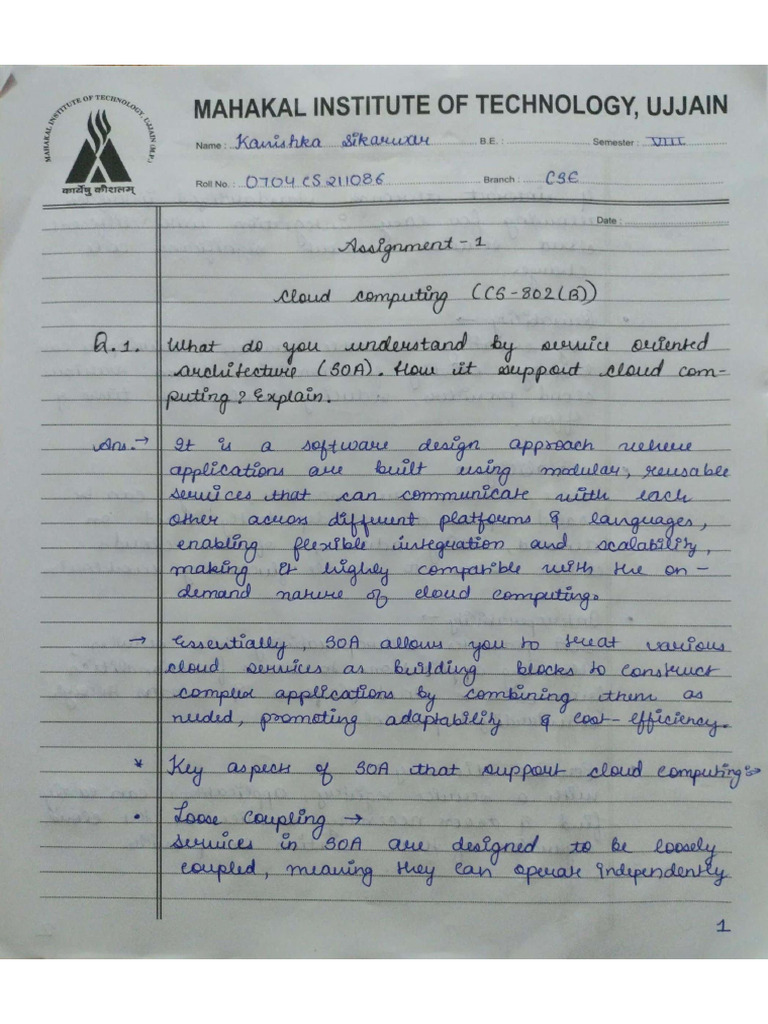 MAHAKAL INSTITUTE OF TECHNOLOGY, UJJAIN (M.P.)
कार्येषु कौशलम्
MAHAKAL INSTITUTE OF TECHNOLOGY, UJJAIN
Name : Kanishka Sikarwar B.E. : Semester : VIII
Roll No. : 0704 CS 211086 Branch : CSE
Date :
Assignment - 1
Cloud computing (CS-802(B))
Q.1. What do you understand by service oriented
architecture (SOA). How it support cloud com-
puting? Explain.
Ans. → It is a software design approach where
applications are built using modular, reusable
services that can communicate with each
other across different platforms & languages,
enabling flexible integration and scalability,
making it highly compatible with the on-
demand nature of cloud computing.
→ Essentially, SOA allows you to treat various
cloud services as building blocks to construct
complex applications by combining them as
needed, promoting adaptability & cost-efficiency.
* Key aspects of SOA that support cloud computing:→
• Loose Coupling →
Services in SOA are designed to be loosely
coupled, meaning they can operate independently
1